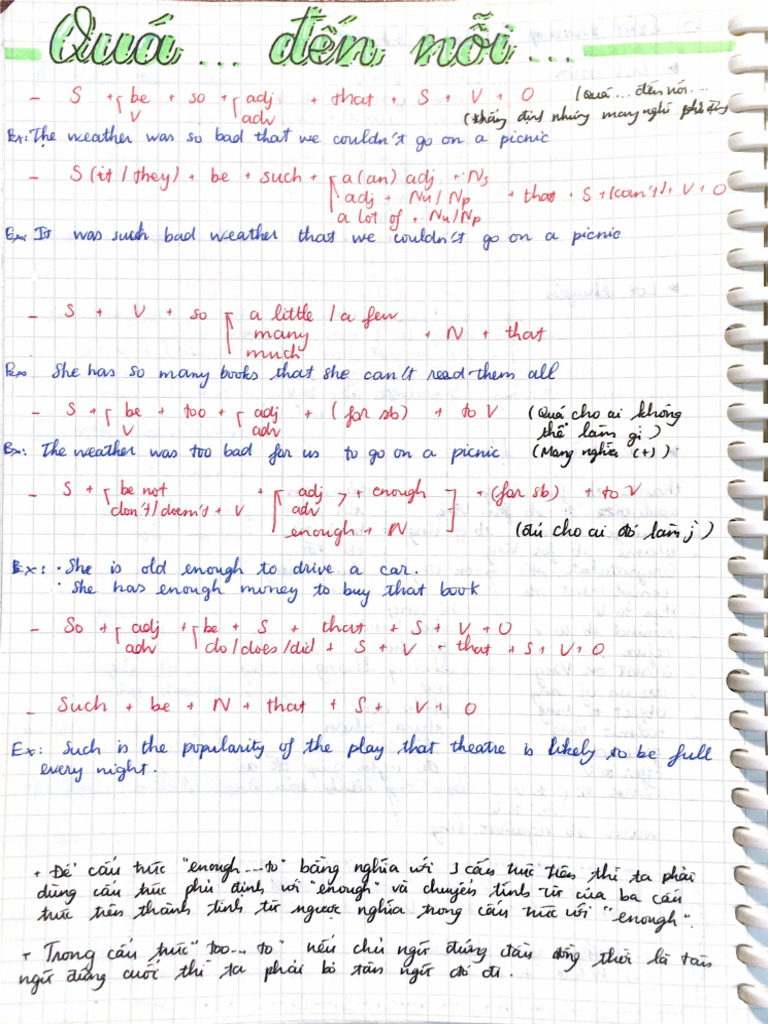 Quá ... đến nỗi ...
- S + be + so + adj + that + S + V + O (Quá ... đến nỗi ...
V adv (khẳng định nhưng mang nghĩa phủ định
Ex: The weather was so bad that we couldn't go on a picnic
- S (it / they) + be + such + a (an) adj + Ns
adj + Nu / Np + that + S + (can't) + V + O
a lot of + Nu/Np
Ex: It was such bad weather that we couldn't go on a picnic
- S + V + so a little / a few
many + N + that
much
Ex: She has so many books that she can't read them all
- S + be + too + adj + (for sb) + to V (Quá cho ai không
V adv thể làm gì)
Ex: The weather was too bad for us to go on a picnic (Mang nghĩa (+))
- S + be not + adj + enough + (for sb) + to V
don't / doesn't + V adv
enough + N (đủ cho ai đó làm j)
Ex: • She is old enough to drive a car.
• She has enough money to buy that book
- So + adj + be + S + that + S + V + O
adv do / does / did + S + V + that + S + V + O
- Such + be + N + that + S + V + O
Ex: Such is the popularity of the play that theatre is likely to be full
every night.
+ Để cấu trúc "enough ... to" bằng nghĩa với 3 cấu trúc trên thì ta phải
dùng cấu trúc phủ định với "enough" và chuyển tính từ của ba cấu
trúc trên thành tính từ ngược nghĩa trong cấu trúc với "enough".
+ Trong cấu trúc "too ... to" nếu chủ ngữ đứng đầu đồng thời là tân
ngữ đứng cuối thì ta phải bỏ tân ngữ đó đi.